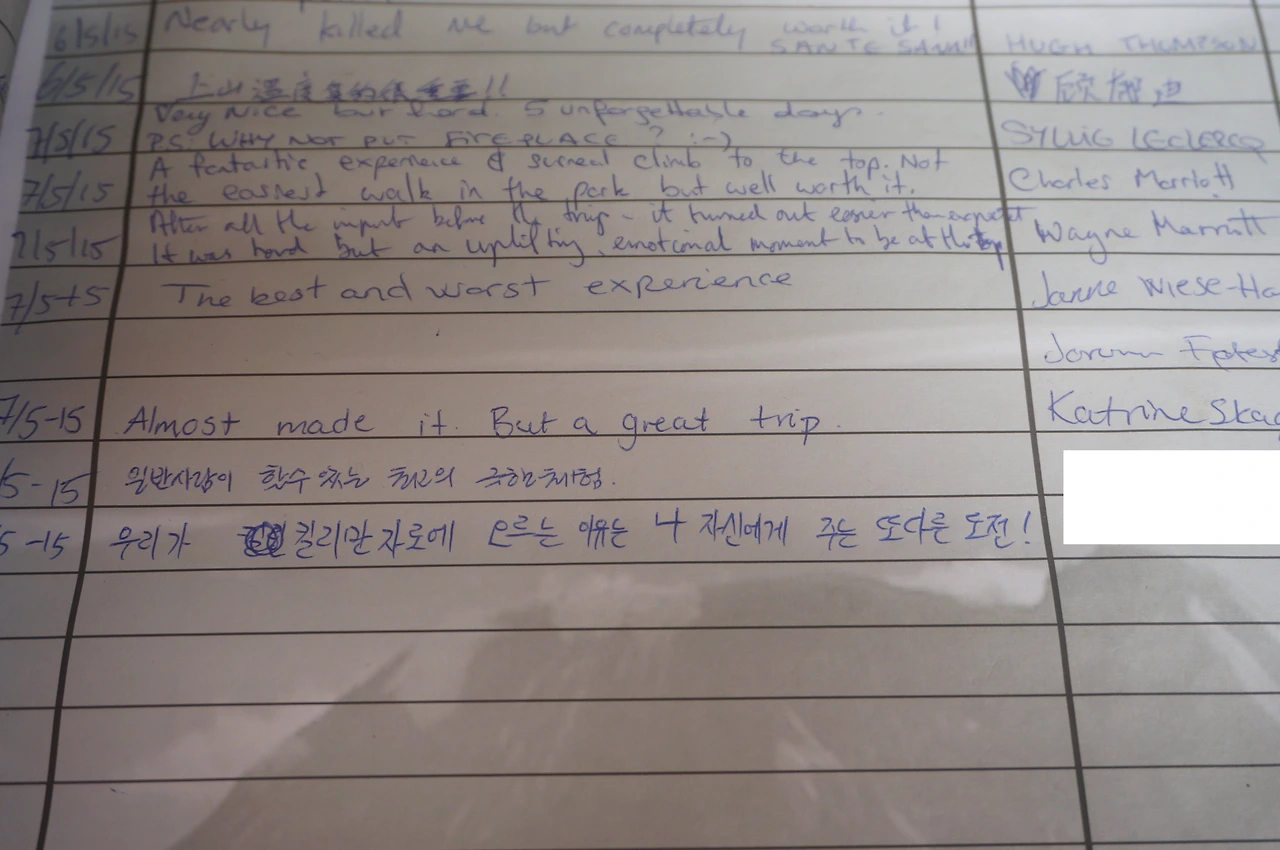 6/5/15 Nearly killed me but completely worth it!
SANTE SANA!! HUGH THOMPSON
6/5/15 上山温度真的很重要!!
Very nice but hard. 5 unforgettable days.
7/5/15 PS: WHY NOT PUT FIREPLACE? :-) SYLVIG LECLERCQ
A fantastic experience & surreal climb to the top. Not
7/5/15 the easiest walk in the park but well worth it. Charles Marriott
After all the input before the trip - it turned out easier than expect
7/5/15 It was hard but an uplifting, emotional moment to be at the top Wayne Marriott
7/5-15 The best and worst experience Janne Wiese-Ha
Jorunn
7/5-15 Almost made it. But a great trip. Katrine Skag
/5-15 일반사람이 할수 있는 최고의 극한체험.
5-15 우리가 킬리만자로에 오르는 이유는 나 자신에게 주는 또다른 도전!